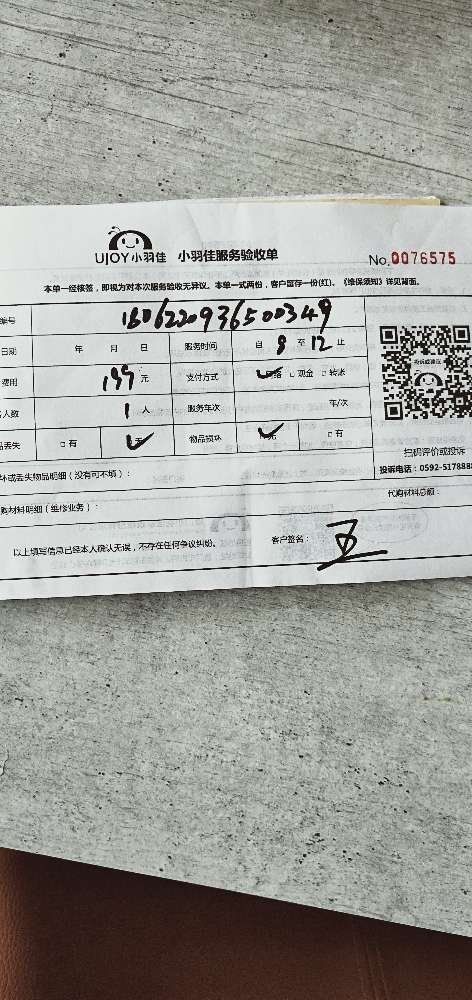 UJOY小羽佳 小羽佳服务验收单 No.0076575
本单一经核签，即视为对本次服务验收无异议。本单一式两份，客户留存一份(红)。《维保须知》详见背面。
编号 1606220936500349
日期 年 月 日 服务时间 自 8 至 12 止
费用 199 元 支付方式 □现金 □转账
人数 1 人 服务车次 车/次
品丢失 □有 物品损坏 □有
扫码评价或投诉
投诉电话：0592-517888
坏或丢失物品明细（没有可不填）：
购材料明细（维修业务）： 代购材料总额：
以上填写信息已经本人确认无误，不存在任何争议纠纷。 客户签名：